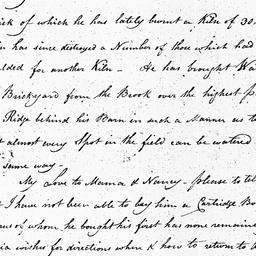 ick of which he has lately burnt a Kiln of 30.
in has since destroyed a Number of those which had
ulded for another Kiln – He has brought Wa
Brickyard from the Brook over the highest p
Ridge behind his Barn in such a Manner as to
t almost every Spot in the field can be watered
same way –
My Love to Mama & Nancy – please to tell
t I have not been able to buy him a Cartridge Bo
aus of whom he bought his first has none remaine
ia wishes for directions when & how to return to